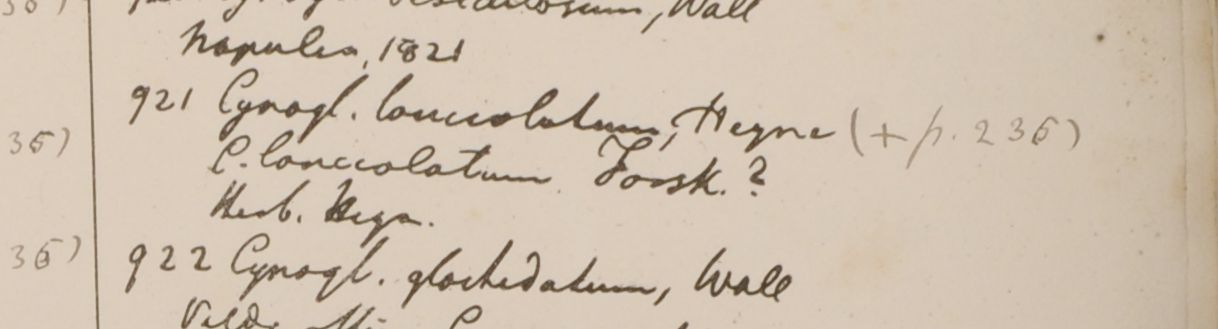 vesiculosum, Wall
Napalia, 1821
921 Cynogl. lanceolatum, Heyne (+ p. 236)
35)
C. lanceolatum Forsk. ?
Herb. Heyn.
36) 922 Cynogl. glochidatum, Wall